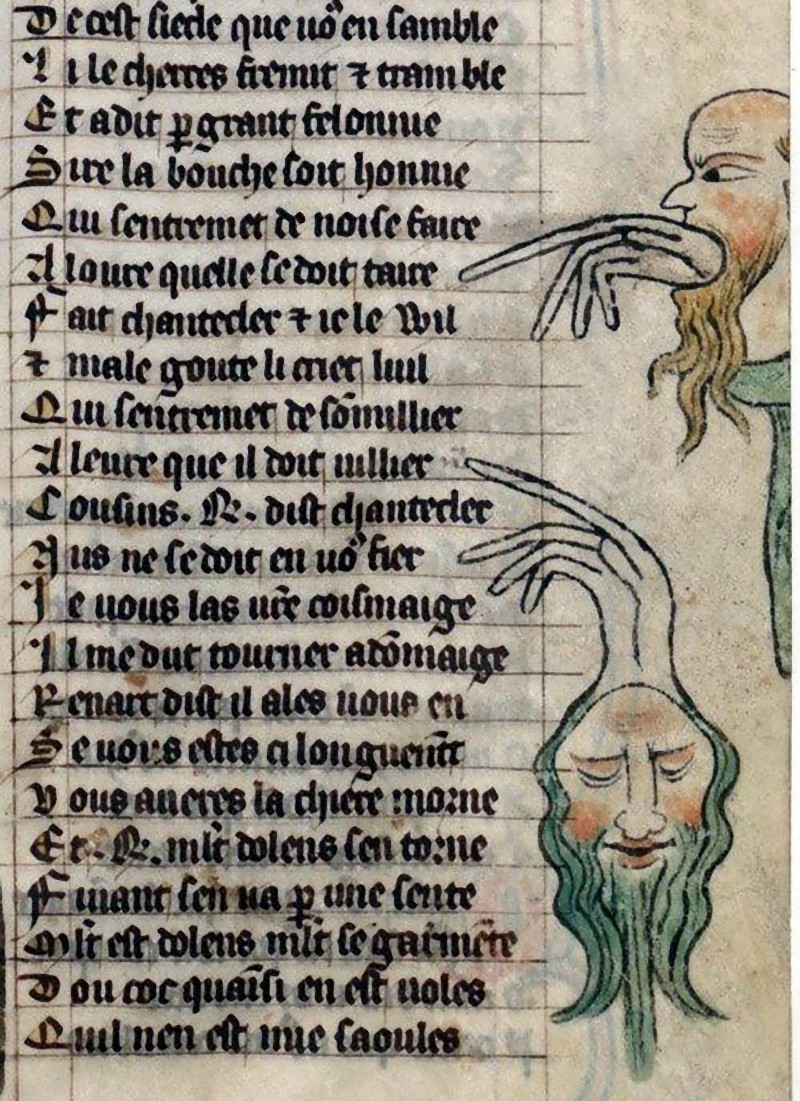 De cest siecle que uo᷒ en samble
Li le cherres fremit ⁊ tramble
Et a dit ꝑ grant felonnie
Sire la bouche soit honnie
Qui sentremet de noise faire
A loure quelle se doit taire
Fait chantecler ⁊ ie le vvil
⁊ male goute li criet luil
Qui sentremet de sōmillier
A leure que il doit uillier
Cousins .R. dist chantecler
Nus ne se doit en uo᷒ fier
De uous las ur̄e coisinaige
Il me dut tourner a dōmaige
Renart dist il ales uous en
Se uous estes ci longuem̄t
Vous aueres la chiere morne
Et .R. ml̄t dolens sen torne
Fuiant sen ua ꝑ une sente
Ml̄t est dolens ml̄t se garmēte
Dou coc quaīsi en est uoles
Quil nen est mie saoules